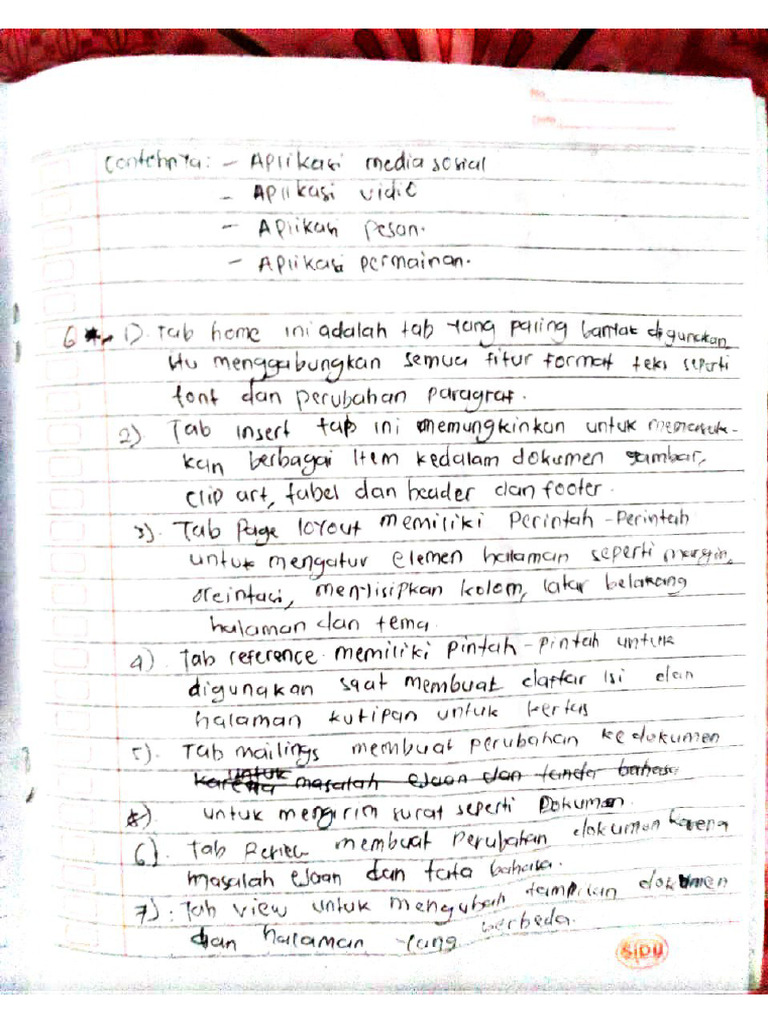 No.
Date
Contohnya: - Aplikasi media sosial
- Aplikasi vidio
- Aplikasi pesan.
- Aplikasi permainan.
6 1). Tab home ini adalah tab yang paring banyak digunakan,
itu menggabungkan semua fitur format teks seperti
font dan perubahan paragraf.
2) Tab insert tab ini memungkinkan untuk memasuk-
kan berbagai item kedalam dokumen gambar,
clip art, tabel dan header dan footer.
3). Tab Page loyout memiliki perintah-perintah
untuk mengatur elemen halaman seperti margin,
oreintasi, menyisipkan kolom, latar belakang
halaman dan tema.
4) Tab reference memiliki pintah-pintah untuk
digunakan saat membuat daftar isi dan
halaman kutipan untuk kertas
5). Tab mailings membuat perubahan ke dokumen
untuk
karena masalah ejaan dan tanda bahasa
untuk mengirim surat seperti Dokumen.
6). Tab Review membuat perubahan dokumen karena
masalah ejaan dan tata bahasa.
7). Tab view untuk mengubah tampilan dokumen
dan halaman yang berbeda.
SIDU